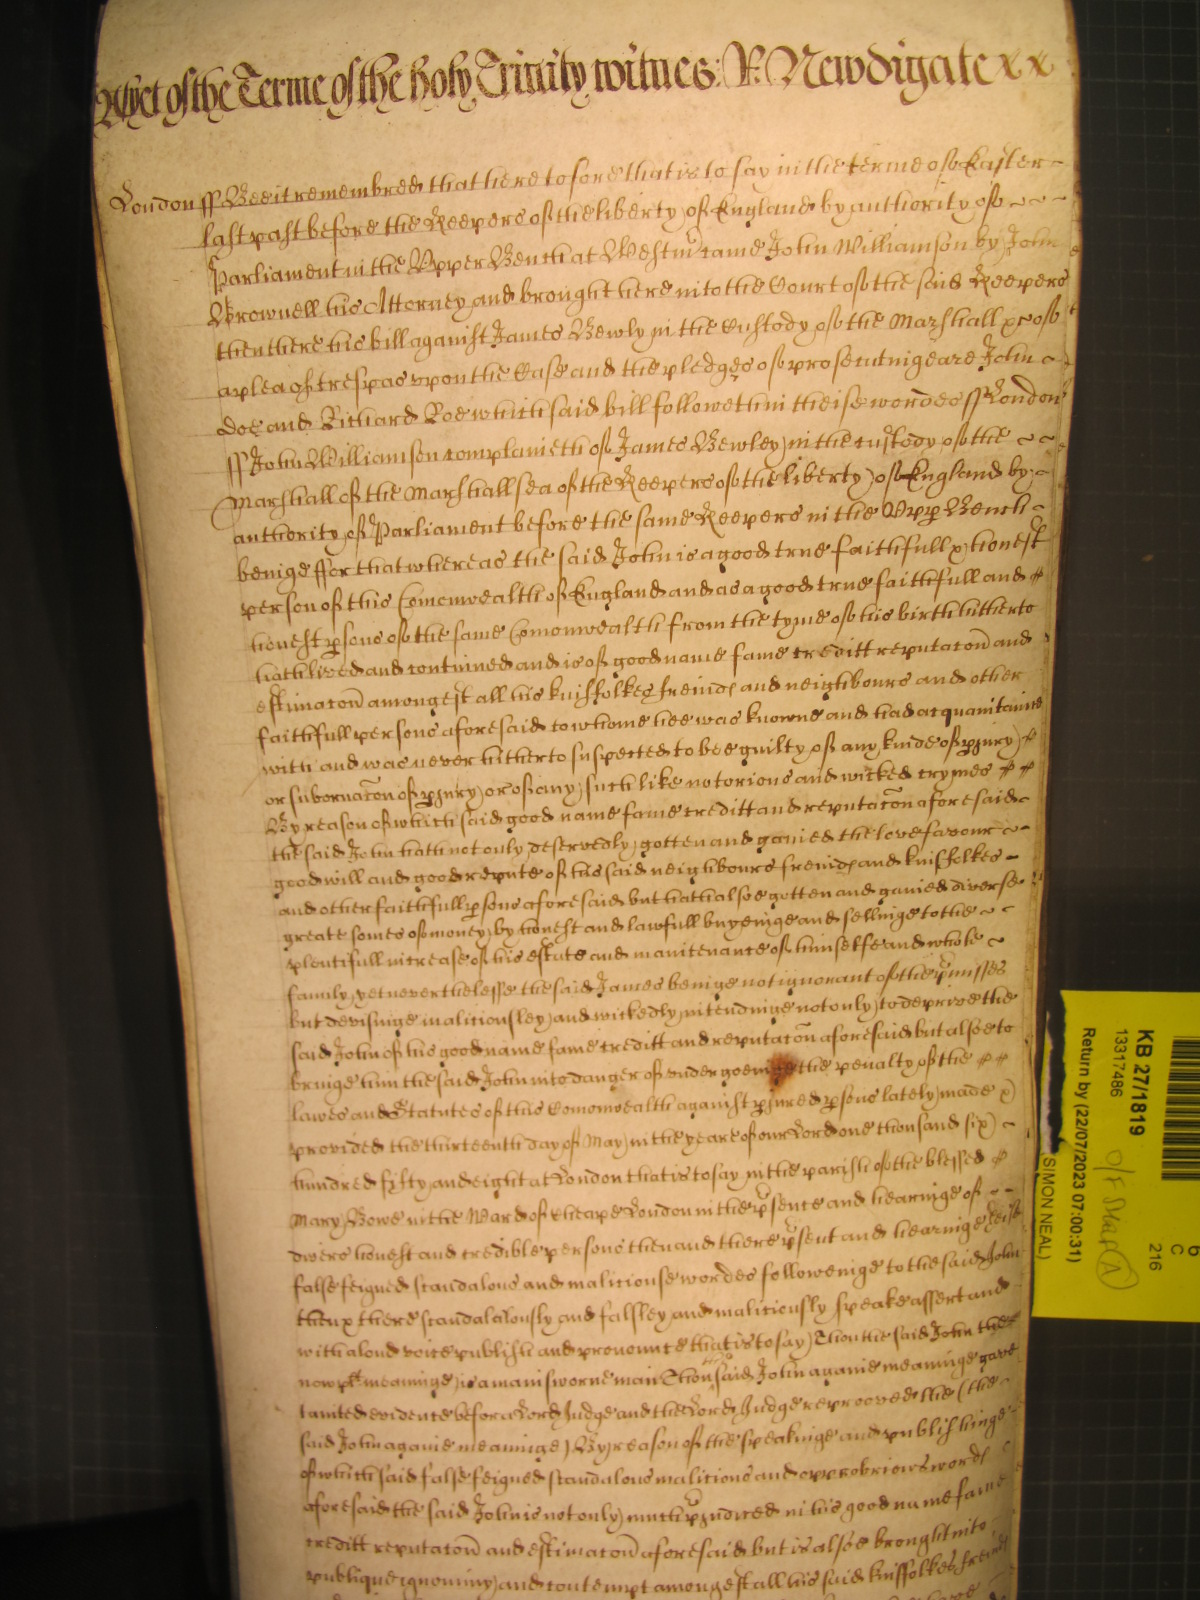 Yet of the Terme of the holy Trinity witnes: R: Newdigate xx
London ss Bee it remembred that heretofore that is to say in the terme of Easter
last past before the Keepers of the liberty of England by authority of
Parliament in the Upper Bench at Westm̃ came John Williamson by John
Brownell his Attorney and brought here into the Court of the said Keepers
then there his bill against James Bewly in the Custody of the Marshall &c of
a plea of trespas upon the Case and the pledges of prosecutinge are John
doe and Richard Roe which said bill followeth in theise wordes ss London
ss John Williamson complaineth of James Bewley in the custody of the
Marshall of the Marshallsea of the Keepers of the liberty of England by
authority of Parliament before the same Keepers in the Upp Bench
beinge ffor that whereas the said John is a good true faithfull & honest
person of this Comonwealth of England and as a good true faithfull and
honest psons of the same Comonwealth from the tyme of his birth hitherto
hath lived and contined and is of good name fame creditt reputacon̄ and
estimacon̄ amongest all his kinsfolkes freinds and neighbours and other
faithfull persons aforesaid to whome hee was knowne and had acquaintance
with and was never hitherto suspected to bee guilty of any kinde of piury
or subornacōn of piury or of any such like notorious and wicked crymes
By reason of which said good name fame creditt and reputacōn aforesaid
the said John hath not only deservedly gotten and gained the love favour
good will and good repute of his said neighbours freinds and kinsfolkes
and other faithfull psons aforesaid but hath alsoe gotten and gained diverse
greate somes of money by honest and lawfull buyeinge and sellinge to the
plentifull increase of his estate and maintenance of himselfe and whole
family, yet neverthelesse the said James beinge not ignorant of the pmisses
but devisinge maliciousley and wickedly intendinge not only to deprive the
said John of his good name fame creditt and reputacōn aforesaid but alsoe to
bringe him the said John into danger of undergoeinge the penalty of the
lawes and Statutes of this Comonwealth against piured psons lately made &
provided the thirteenth day of May in the yeare of our Lord one thousand six
hundred fifty and eight at London that is to say in the parish of the blessed
Mary Bowe in the Ward of Cheape London in the psence and hearinge of
divers honest and credible persons then and there psent and hearinge theise
false feigned scandalous and maliciouse wordes followeinge to the said John
then & there scandalously and falsley and maliciously speake assert and
with a loud voice publish and pronounce that is to say) Thou the said John then
now plt meaninge) is a mansworne man Thou the said John againe meaninge gave
tainted evidence before a Lord Judge and the Lord Judge reprooved thee (the
said John againe meaninge) By reason of the speakinge and publishinge
of which said false feigned scandalous malicious and opprobrious words
aforesaid the said John is not only much piudiced in his good name fame
creditt reputacon̄ and estimacon̄ aforesaid but is alsoe brought into
publique ignominy and contempt amongest all his said kinsfolkes freinds
KB 27/1819
13317486
Return by (22/07/2023 07:00:31)
(SIMON NEAL)
216
C
6